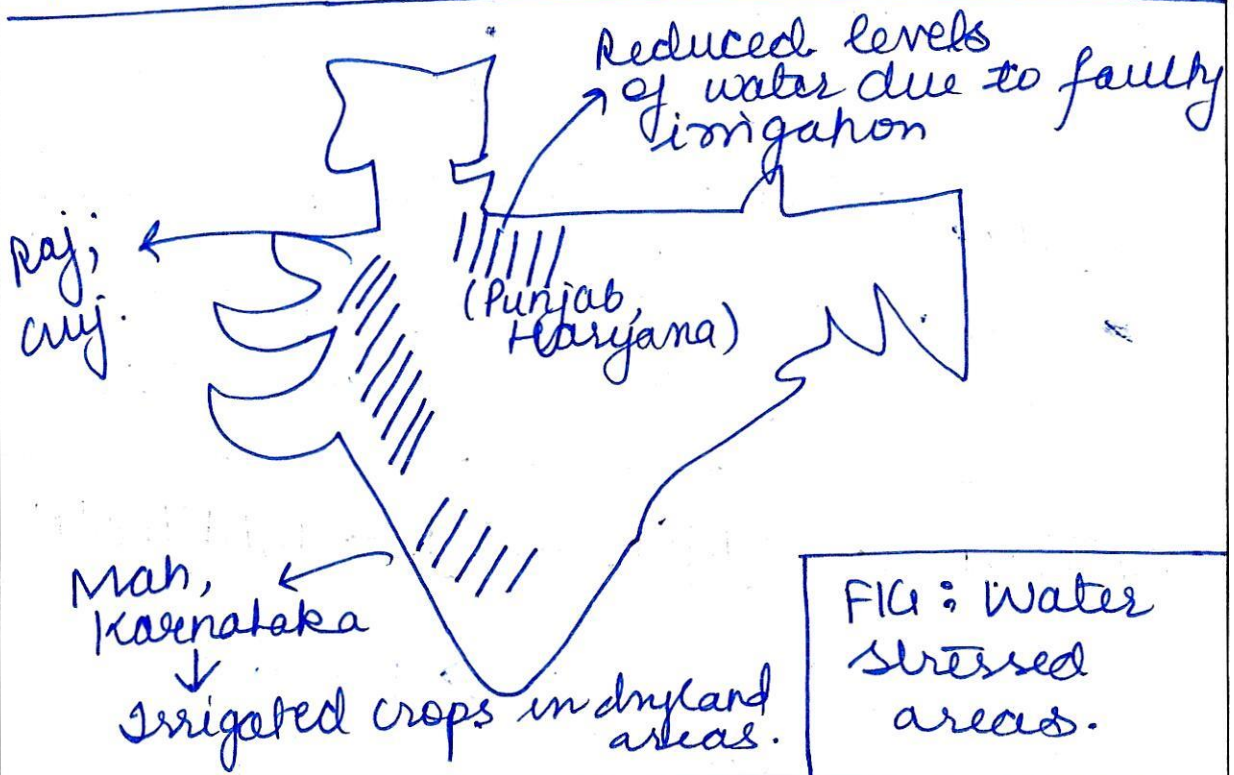 Reduced levels
of water due to faulty
irrigation
Raj,
Guj.
(Punjab,
Haryana)
Mah,
Karnataka
Irrigated crops in dryland
areas.
FIG: Water
stressed
areas.